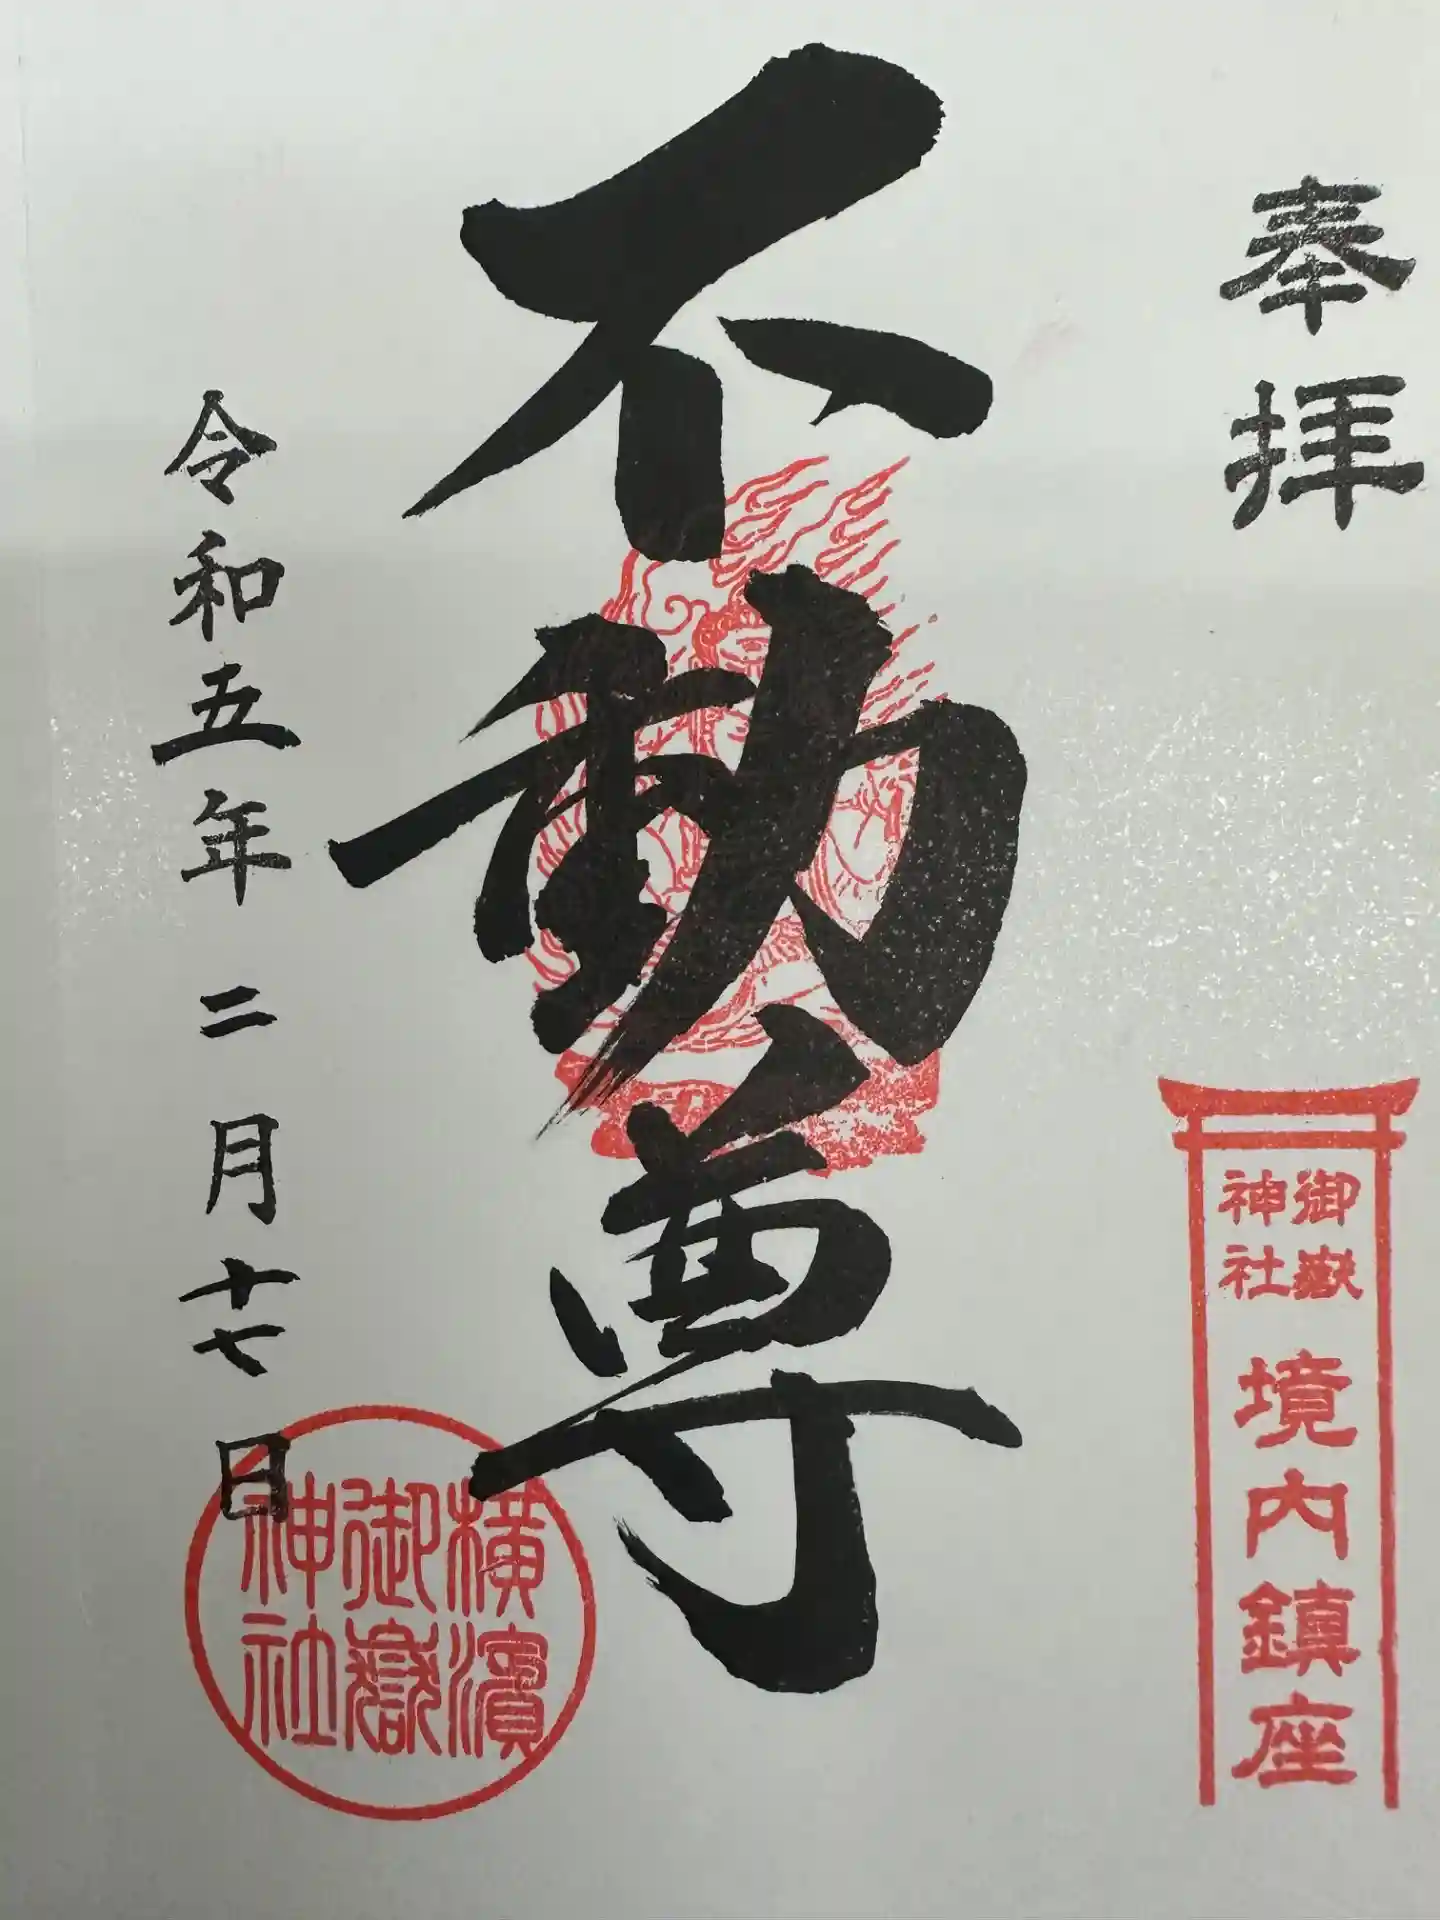 奉拝
御嶽
神社
境内鎮座
不動尊
令和五年二月十七日
横濱
御嶽
神社